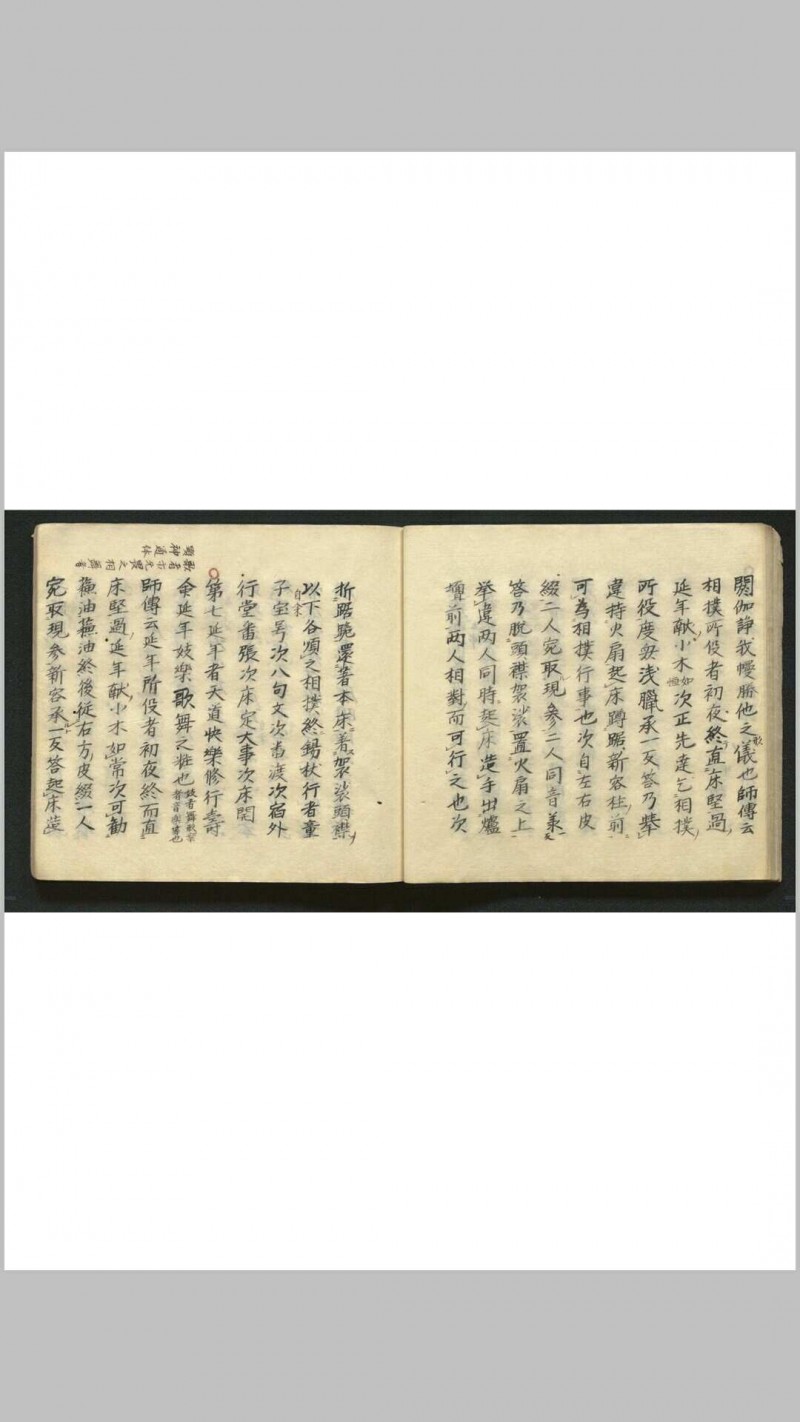 閼伽諍我慢勝他之儀也師傳云
相撲所役者初夜終直床堅過
延年献小木如常次正先達乞相撲
所役度衆浅臈承一反答乃挙
違持火扇起床蹲踞新客柱前
可為相撲行事也次自左右皮
綴二人宛取現参二人同音
答乃脱頭襟袈裟置火扇之上
挙違両人同時起床造手出爐
壇前両人相對而可行之也次
折踞跪還著本床着袈裟頭襟
以下各頌之相撲終錫杖行者童
子宝号次八句文次番渡次宿外
行堂番張次床定大事次床閇
第七延年者天道快樂修行壽
命延年妓樂歌舞之粧也
師傳云延年階役者初夜終而直
床堅過延年献小木如常次可勧
蘓油蘓油終後従右方皮綴一人
宛取現参新客承一反答起床造